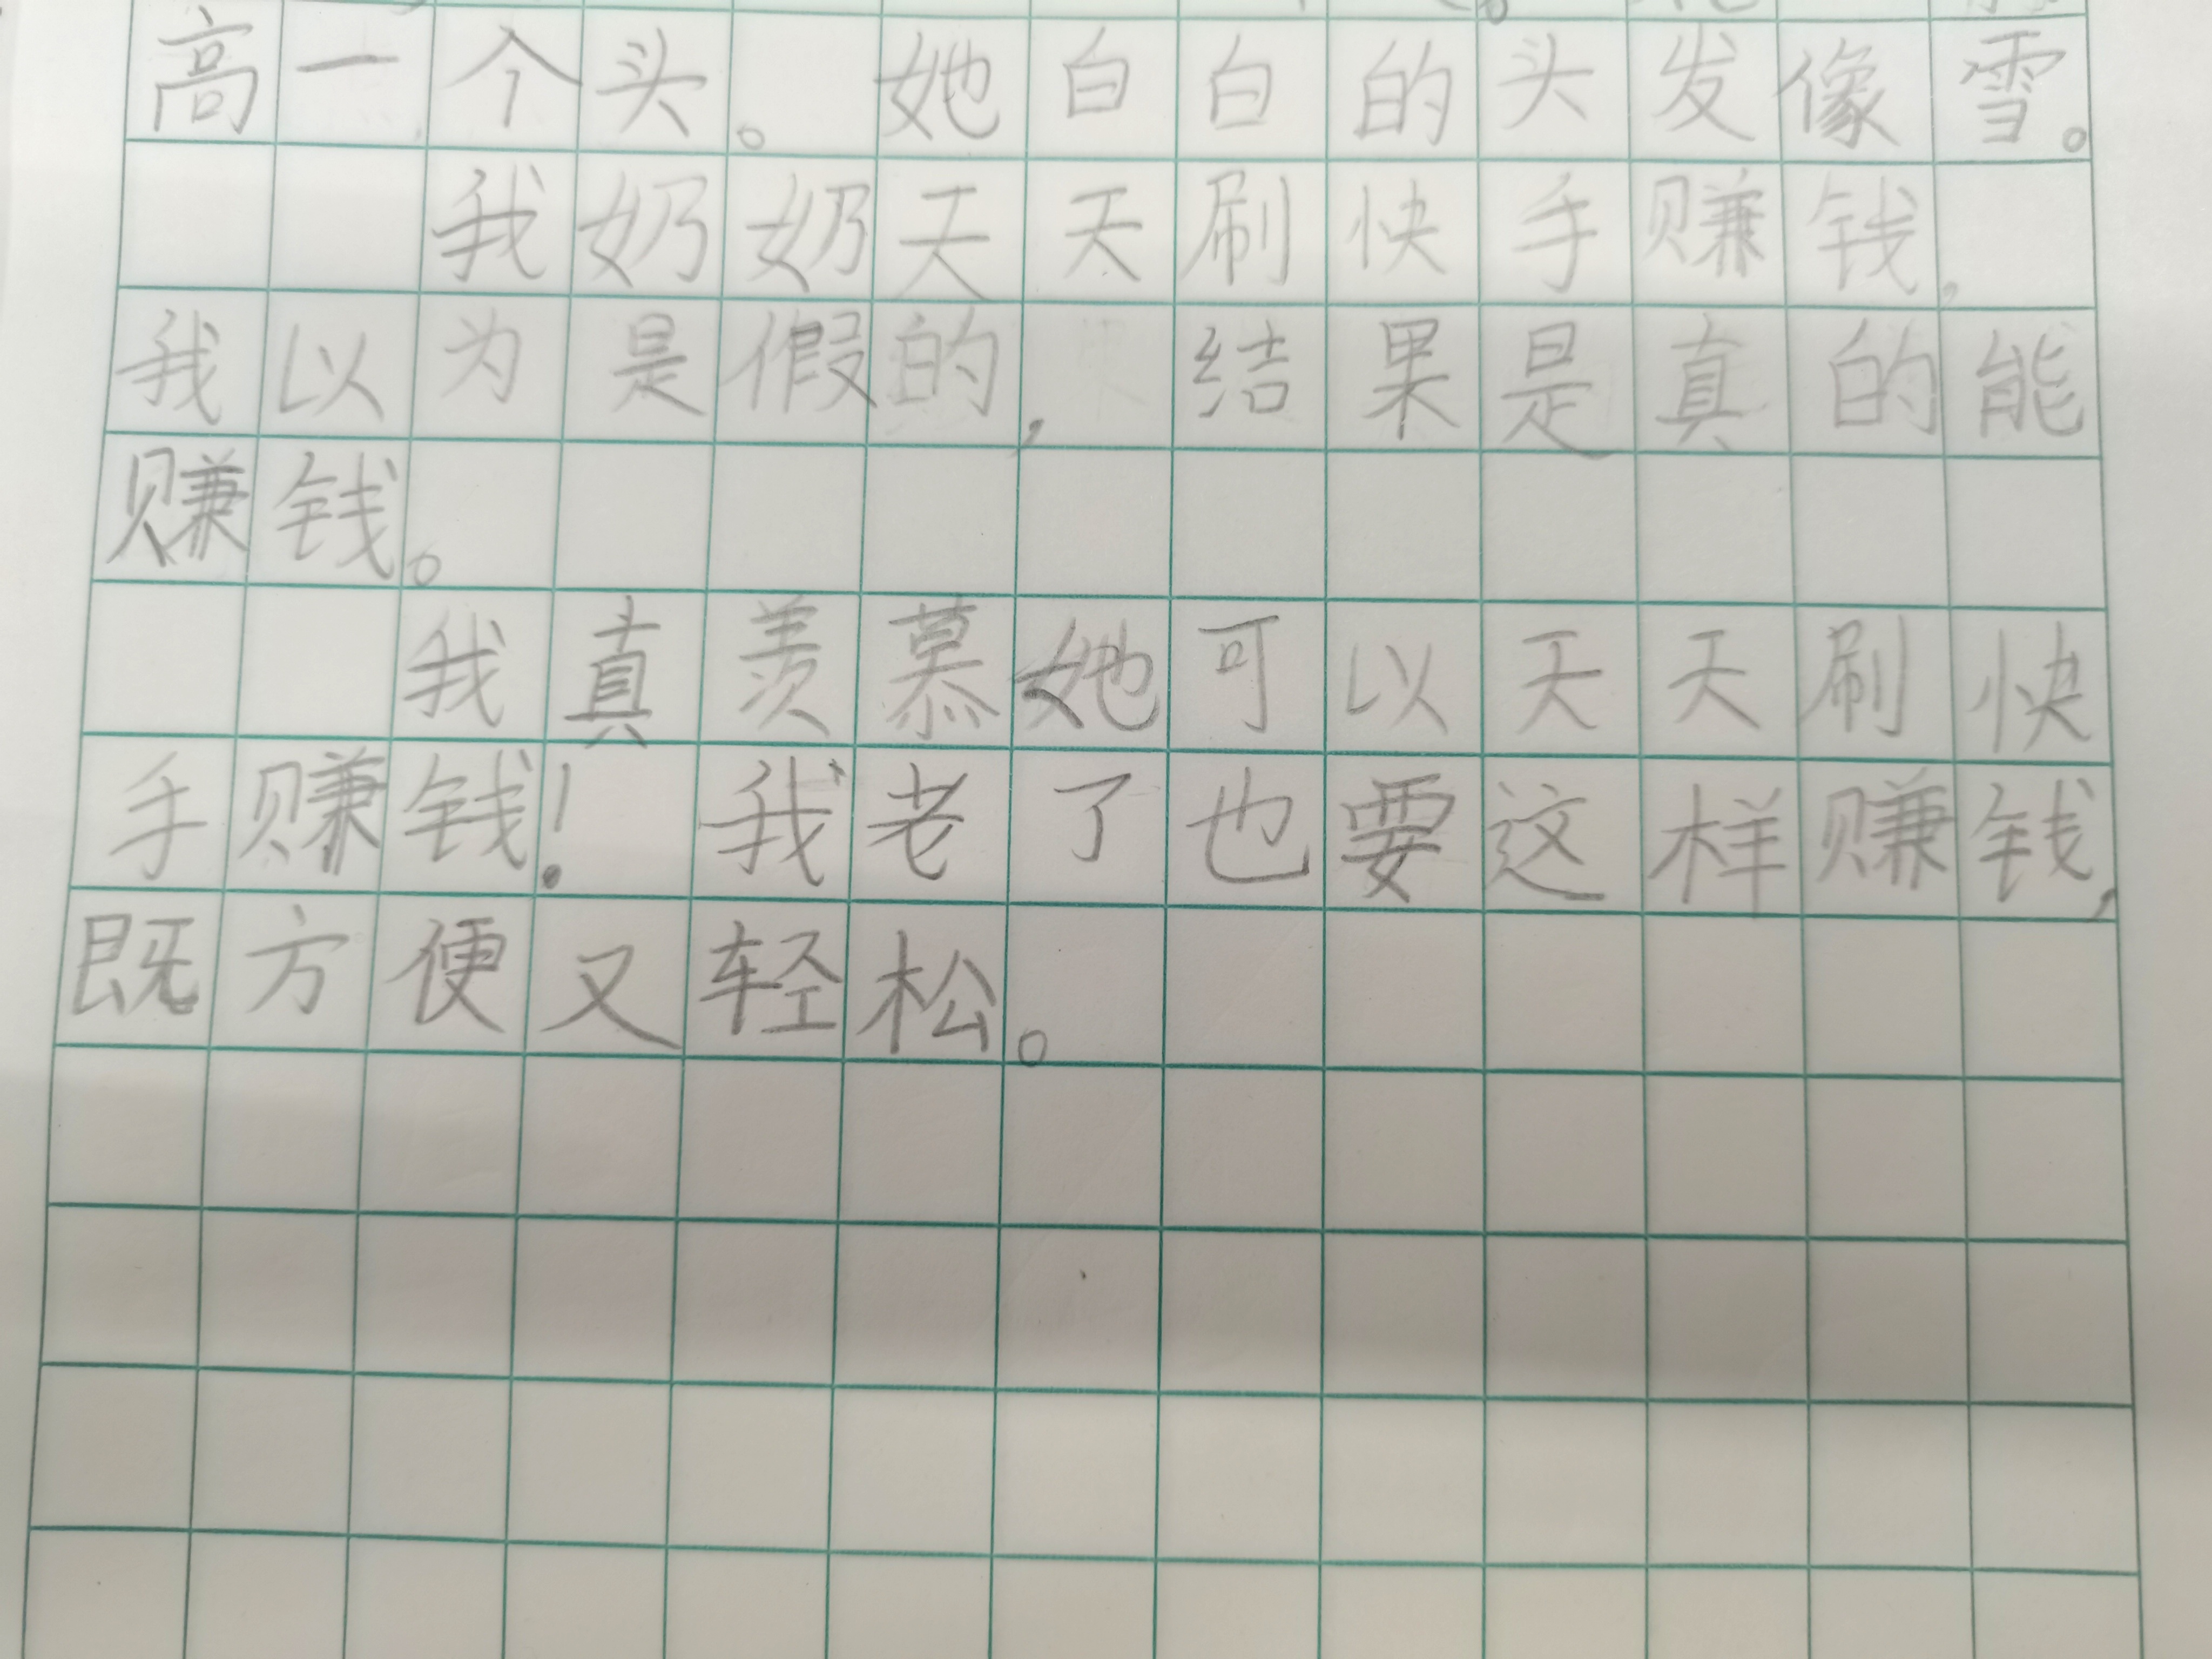 高一个头。她白白的头发像雪。
我奶奶天天刷快手赚钱,
我以为是假的,结果是真的能
赚钱。
我真羡慕她可以天天刷快
手赚钱!我老了也要这样赚钱,
既方便又轻松。